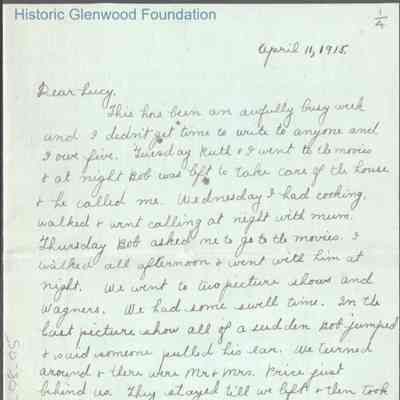 Historic Glenwood Foundation
1/4
April 11, 1915
Dear Lucy,
This has been an awfully busy week
and I didn't get time to write to anyone and
I owe five. Tuesday Ruth & I went to the movies
& at night Bob was left to take care of the house
& he called me. Wednesday I had cooking,
walked & went calling at night with mum.
Thursday Bob asked me to go to the movies. I
walked all afternoon & went with him at
night. We went to two picture shows and
Wagners. We had some swell time. In the
last picture show all of a sudden Bob jumped
& said someone pulled his ear. We turned
around & there were Mr & Mrs. Price just
behind us. They stayed till we left & then took